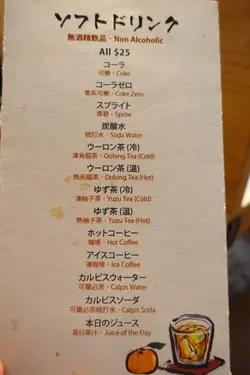 ソフトドリンク
無酒精飲品 · Non Alcoholic
All $25
コーラ
可樂 · Coke
コーラゼロ
零系可樂 · Coke Zero
スプライト
雪碧 · Sprite
炭酸水
梳打水 · Soda Water
ウーロン茶 (冷)
凍烏龍茶 · Oolong Tea (Cold)
ウーロン茶 (温)
熱烏龍茶 · Oolong Tea (Hot)
ゆず茶 (冷)
凍柚子茶 · Yuzu Tea (Cold)
ゆず茶 (温)
熱柚子茶 · Yuzu Tea (Hot)
ホットコーヒー
咖啡 · Hot Coffee
アイスコーヒー
凍咖啡 · Ice Coffee
カルピスウォーター
可爾必思 · Calpis Water
カルピスソーダ
可爾必思梳打水 · Calpis Soda
本日のジュース
是日果汁 · Juice of the Day